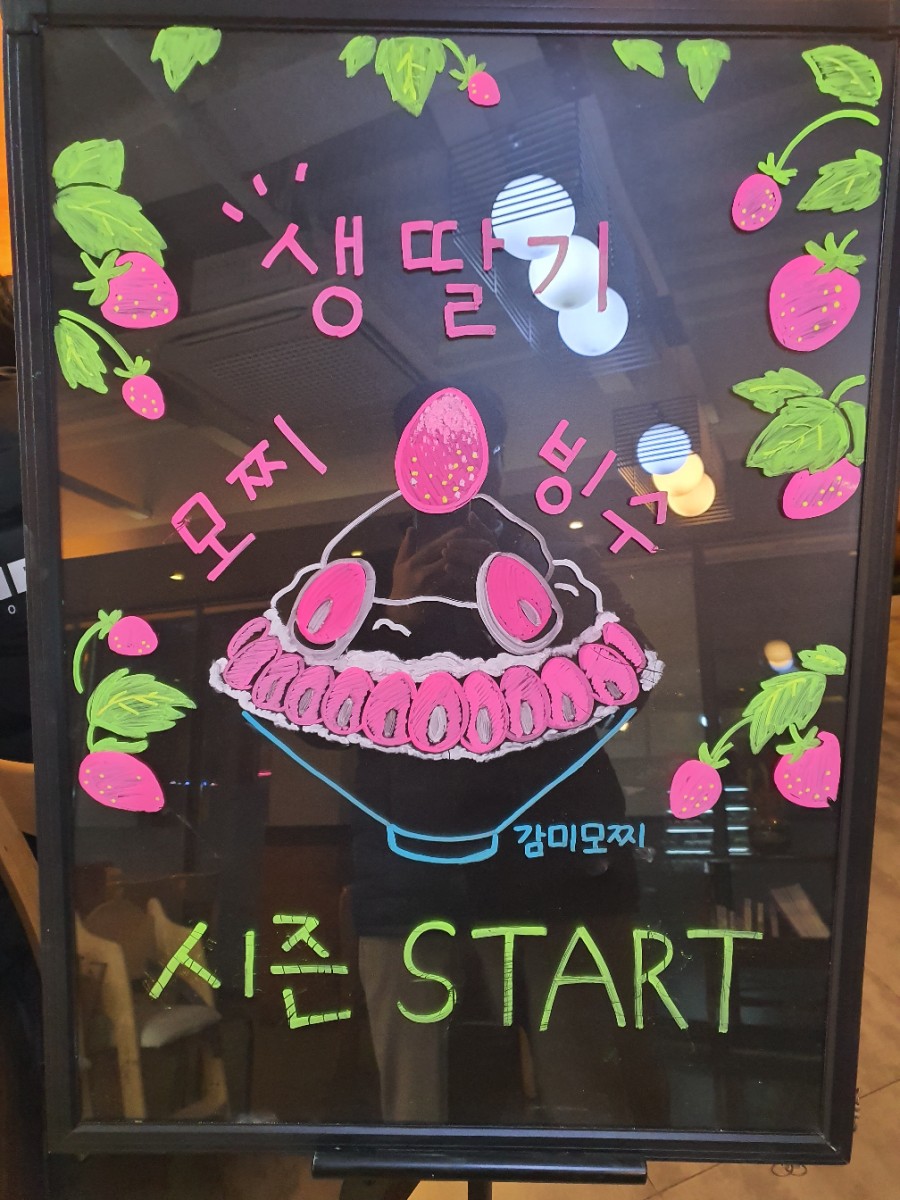 생딸기
모찌 빙수
감미모찌
시즌 START